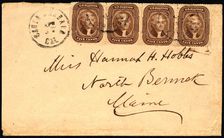 CAL
FIVE CENTS FIVE CENTS FIVE CENTS FIVE CENTS
Miss Hannah H. Hobbs
North Berwick
Maine